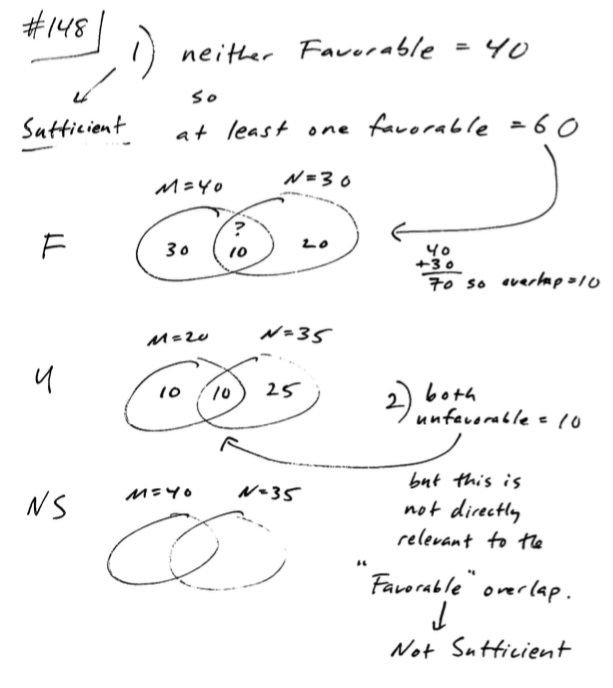 #148
1) neither Favorable = 40
so
Sufficient
at least one favorable = 60
M=40 N=30
F
30 ? 10 20
40
+30
70 so overlap=10
M=20 N=35
U
10 10 25
2) both
unfavorable = 10
NS
M=40 N=35
but this is
not directly
relevant to the
"Favorable" overlap.
Not Sufficient